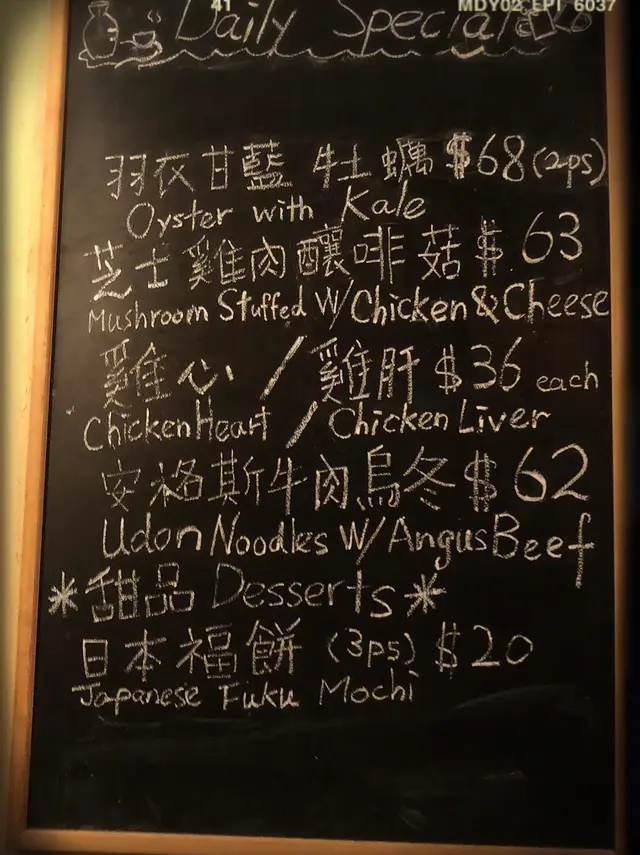 41 MDY02 EPI 6037
Daily Special
羽衣甘藍 牡蠣 $68 (2ps)
Oyster with Kale
芝士雞肉釀啡菇 $63
Mushroom Stuffed W/Chicken & Cheese
雞心 / 雞肝 $36 each
Chicken Heart / Chicken Liver
安格斯牛肉烏冬 $62
Udon Noodles W/ Angus Beef
*甜品 Desserts*
日本福餅 (3ps) $20
Japanese Fuku Mochi